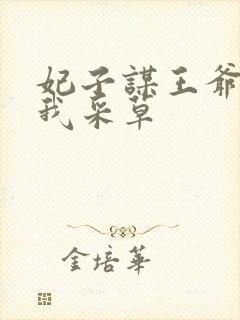 妃子謀王爺
我采草
金培華